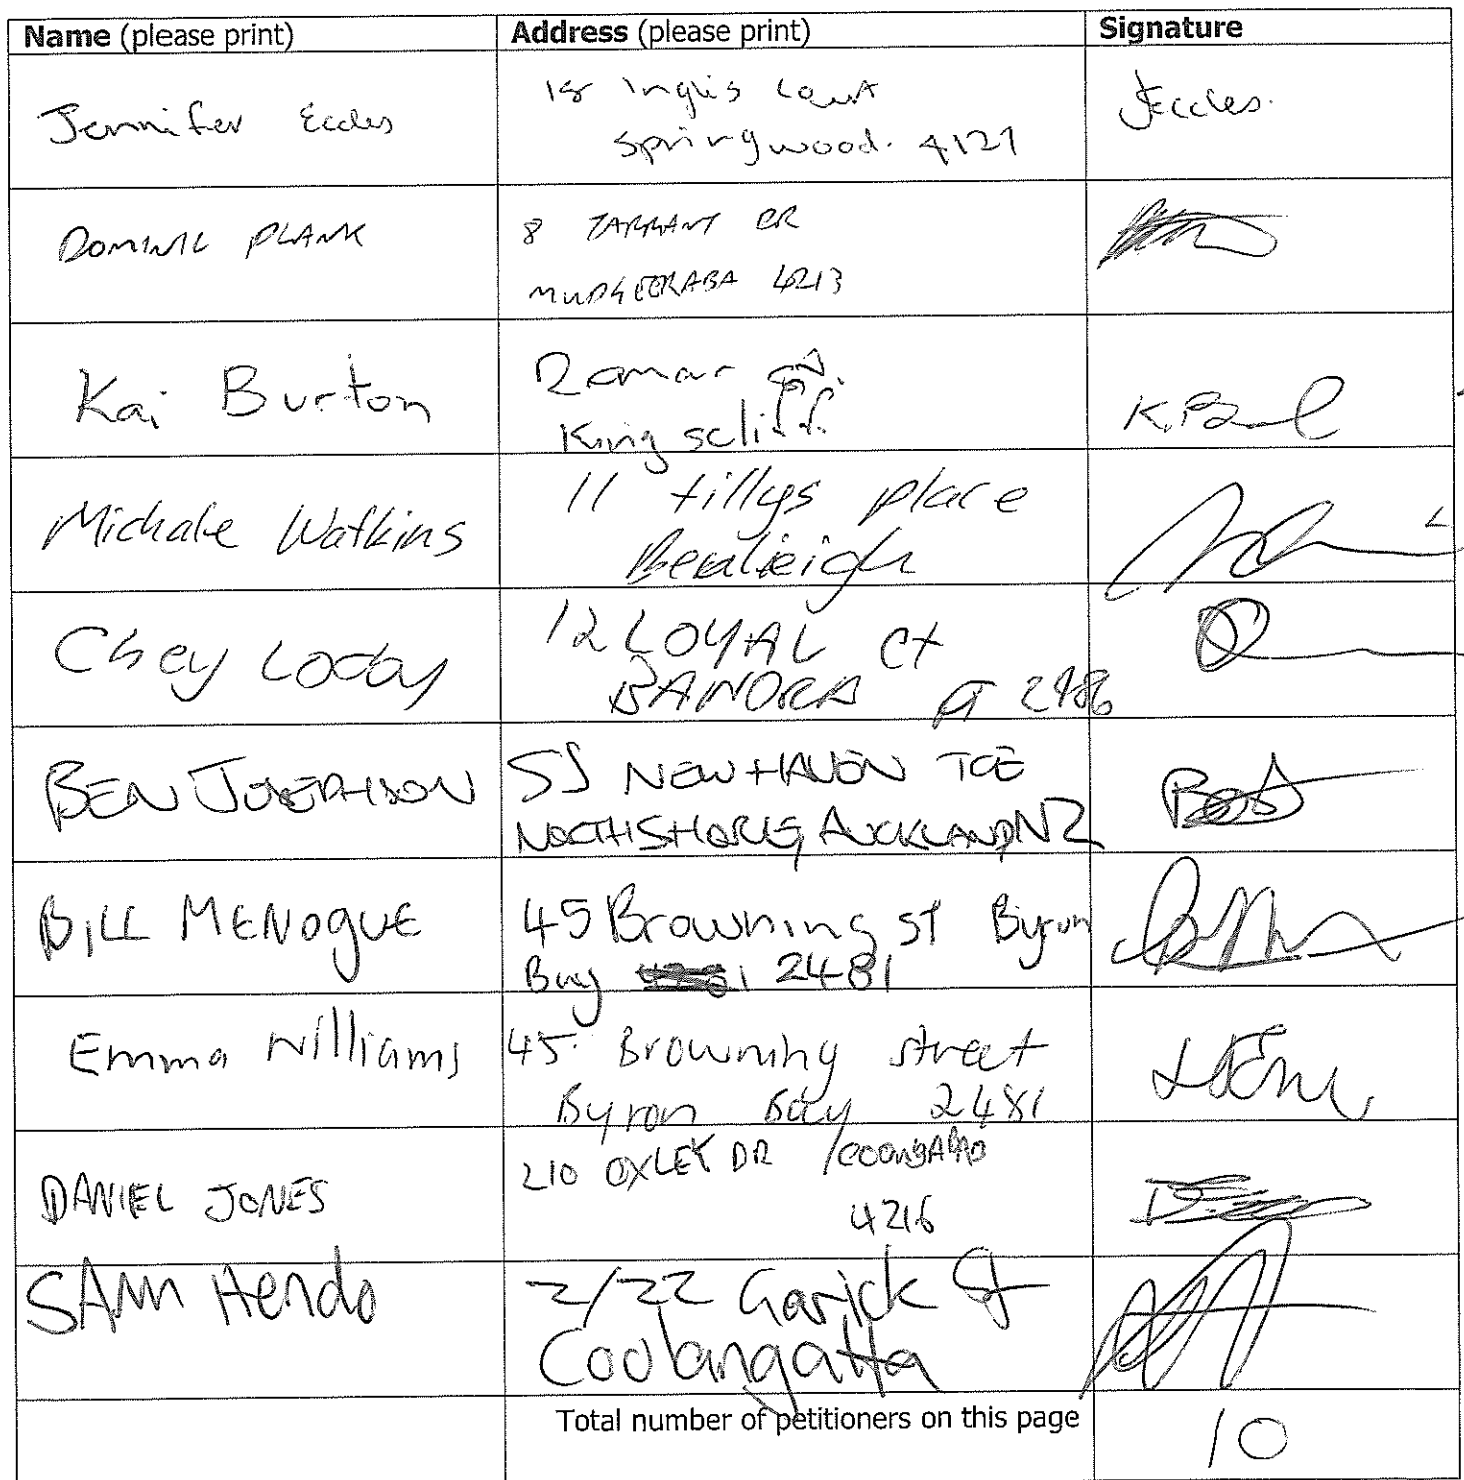 Name (please print) Address (please print) Signature
Jennifer Eccles 18 Inglis Court JEccles.
Springwood. 4127
DOMINIC PLANK 8 TARRANT DR
MUDGEERABA 4213
Kai Burton Kingscliff. K.B
Michale Watkins 11 tillys place
Beenleigh
Chey Locky 12 LOYAL Ct
BANORA PT 2486
BEN JOSEPHSON 55 NEWHAVEN TCE
NORTHSHORE, AUCKLAND NZ
BILL MENOGUE 45 Browning St Byron
Bay 2481
Emma Williams 45 Browning street
Byron Bay 2481
DANIEL JONES 210 OXLEY DR
4216
SAM Hendo 2/22 Garrick St
Coolangatta
Total number of petitioners on this page 10